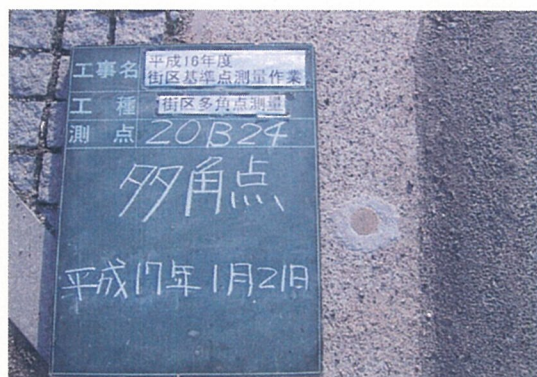 工事名 平成16年度
街区基準点測量作業
工種 街区多角点測量
測点 20B24
多角点
平成17年1月21日